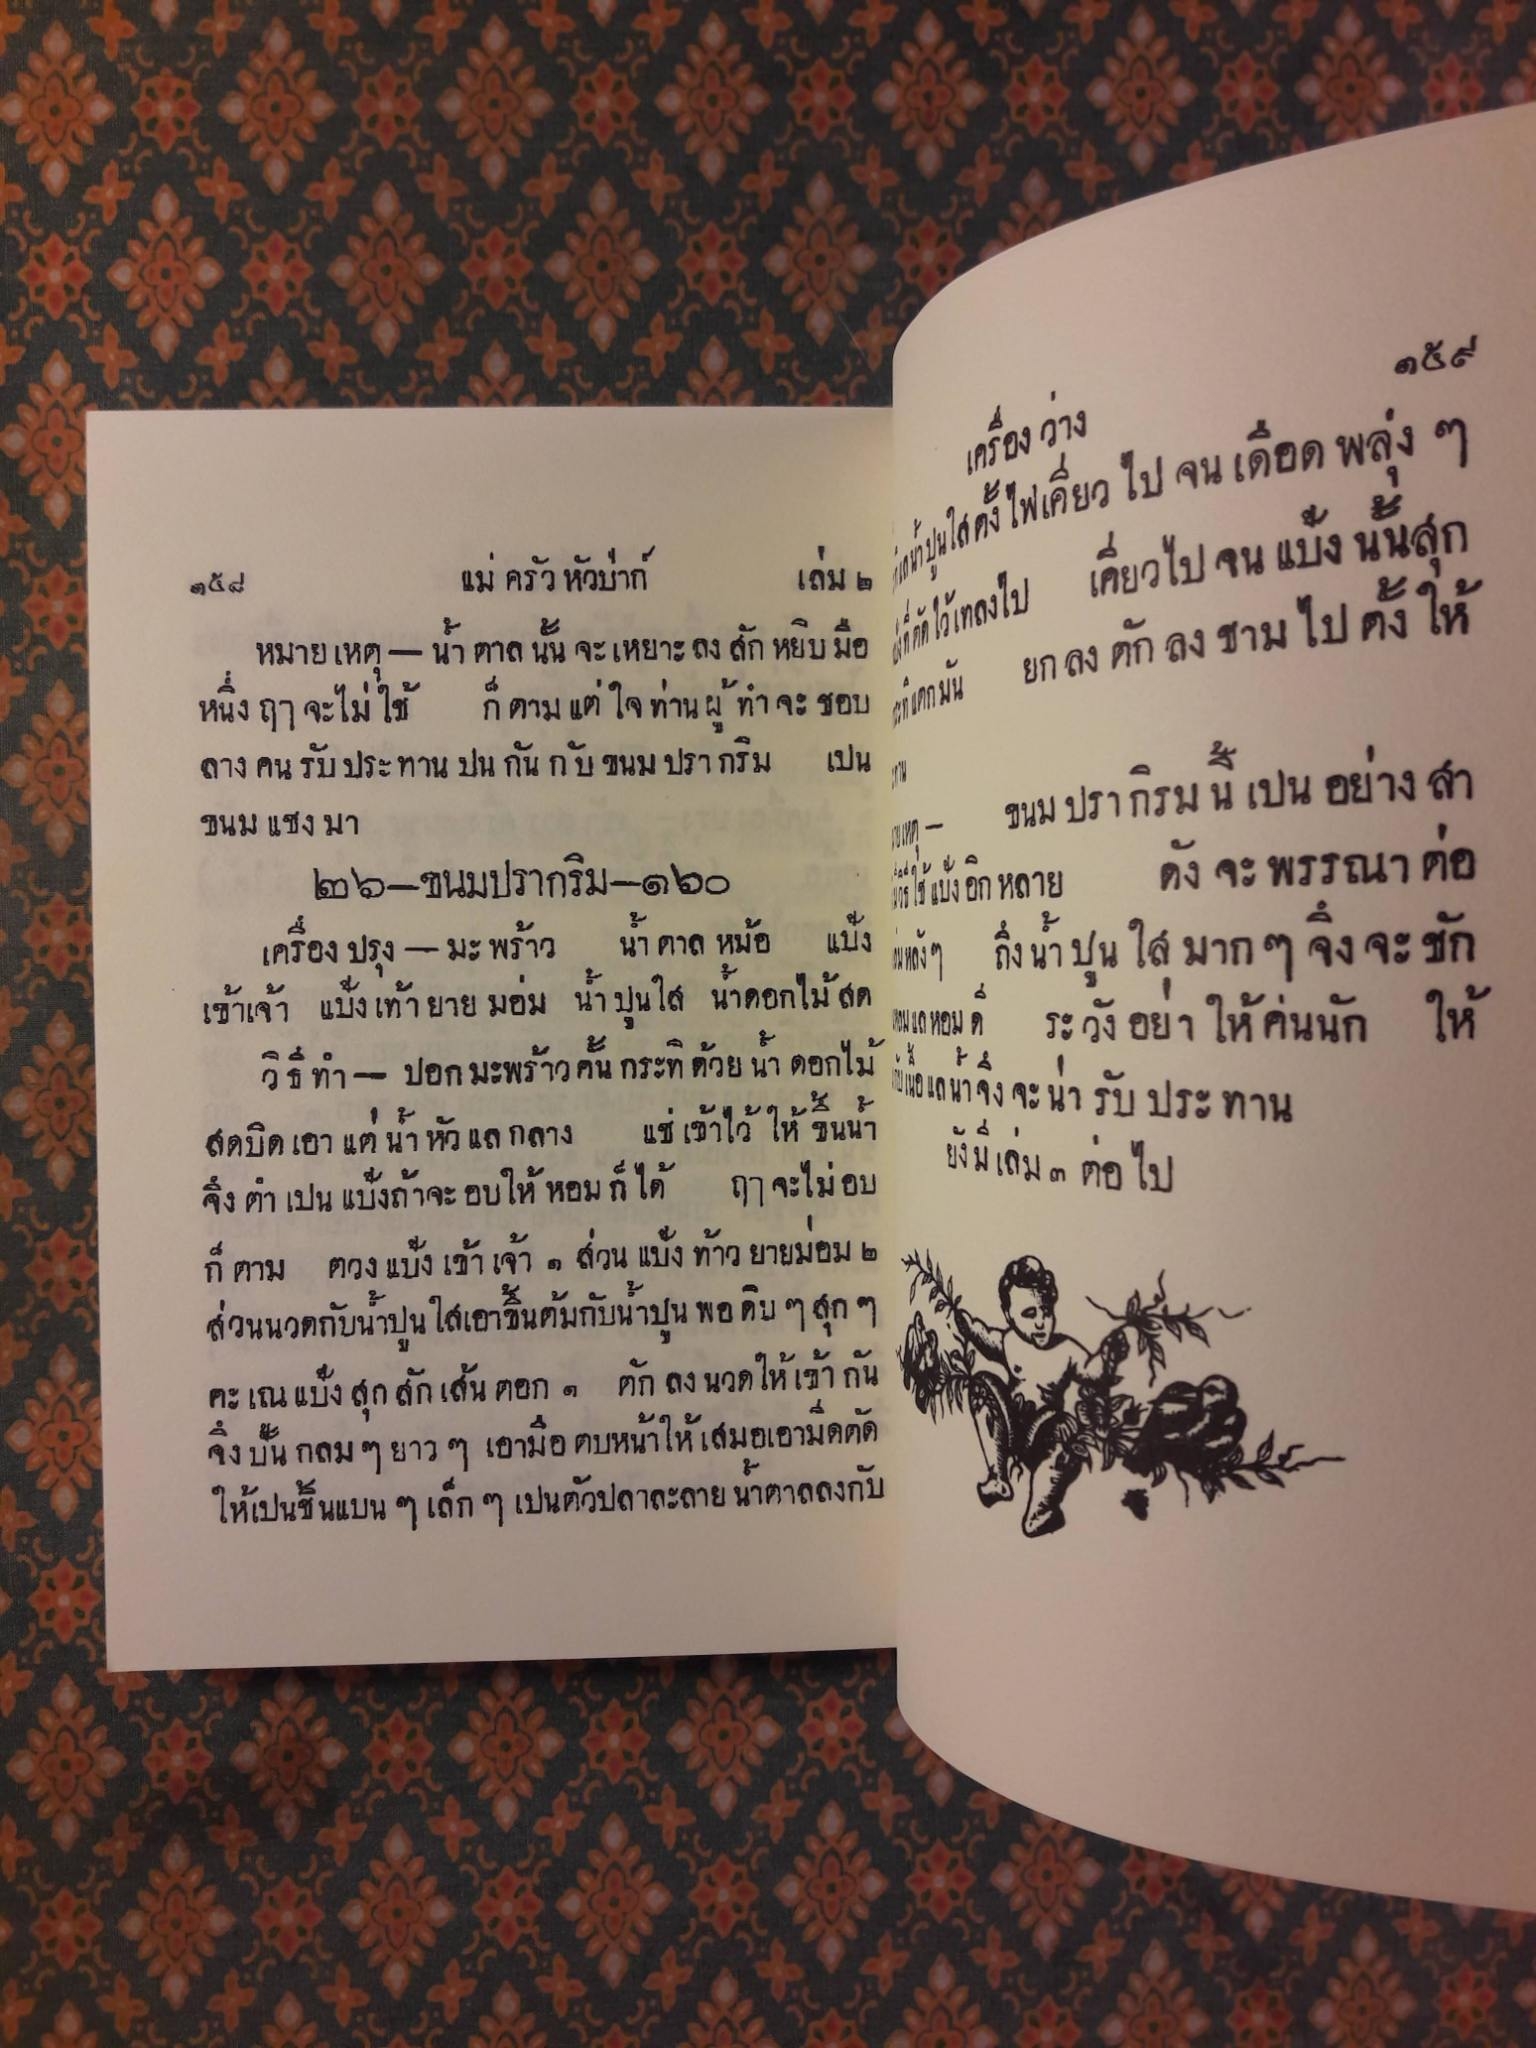 ๑๕๘ แม่ ครัว หัวป่าก์ เล่ม ๒
หมาย เหตุ — น้ำ ตาล นั้น จะ เหยาะ ลง สัก หยิบ มือ
หนึ่ง ฤๅ จะไม่ ใช้ ก็ ตาม แต่ ใจ ท่าน ผู้ ทำ จะ ชอบ
ลาง คน รับ ประ ทาน ปน กัน กับ ขนม ปรา กริม เปน
ขนม แชง มา
๒๖—ขนมปรากริม—๑๖๐
เครื่อง ปรุง — มะ พร้าว น้ำ ตาล หม้อ แป้ง
เข้าเจ้า แป้ง เท้า ยาย มอ่ม น้ำ ปูน ใส น้ำดอกไม้ สด
วิธี ทำ — ปอก มะพร้าว คั้น กระทิ ด้วย น้ำ ดอกไม้
สดบิด เอา แต่ น้ำ หัว แล กลาง แช่ เข้าไว้ ให้ ขึ้นน้ำ
จึ่ง ตำ เปน แป้งถ้าจะ อบให้ หอม ก็ ได้ ฤๅ จะไม่ อบ
ก็ ตาม ตวง แป้ง เข้า เจ้า ๑ ส่วน แป้ง ท้าว ยายม่อม ๒
ส่วนนวดกับน้ำปูน ใสเอาขึ้นต้มกับน้ำปูน พอ ดิบ ๆ สุก ๆ
คะ เณ แป้ง สุก สัก เส้น ตอก ๑ ตัก ลง นวดให้ เข้า กัน
จึ่ง ปั้น กลม ๆ ยาว ๆ เอามือ ตบหน้าให้ เสมอเอามีดตัด
ให้เปนชิ้นแบน ๆ เล็ก ๆ เปนตัวปลาละลาย น้ำตาลลงกับ
เครื่อง ว่าง ๑๕๙
น้ำปูนใสตั้งไฟเคี่ยว ไป จน เดือด พลุ่ง ๆ
ที่ตัด ไว้เทลงไป เคี่ยวไป จน แป้ง นั้นสุก
แตก มัน ยก ลง ตัก ลง ชาม ไป ตั้ง ให้
เหตุ — ขนม ปรา กิรม นี้ เปน อย่าง สา
ใช้ แป้ง อิก หลาย ดัง จะ พรรณา ต่อ
หลัง ๆ ถึ่ง น้ำ ปูน ใส มาก ๆ จึ่ง จะ ชัก
แล หอม ดี ระ วัง อย่า ให้ ค่นนัก ให้
เนื้อ แล น้ำ จึ่ง จะ น่า รับ ประ ทาน
ยัง มี เล่ม ๓ ต่อ ไป